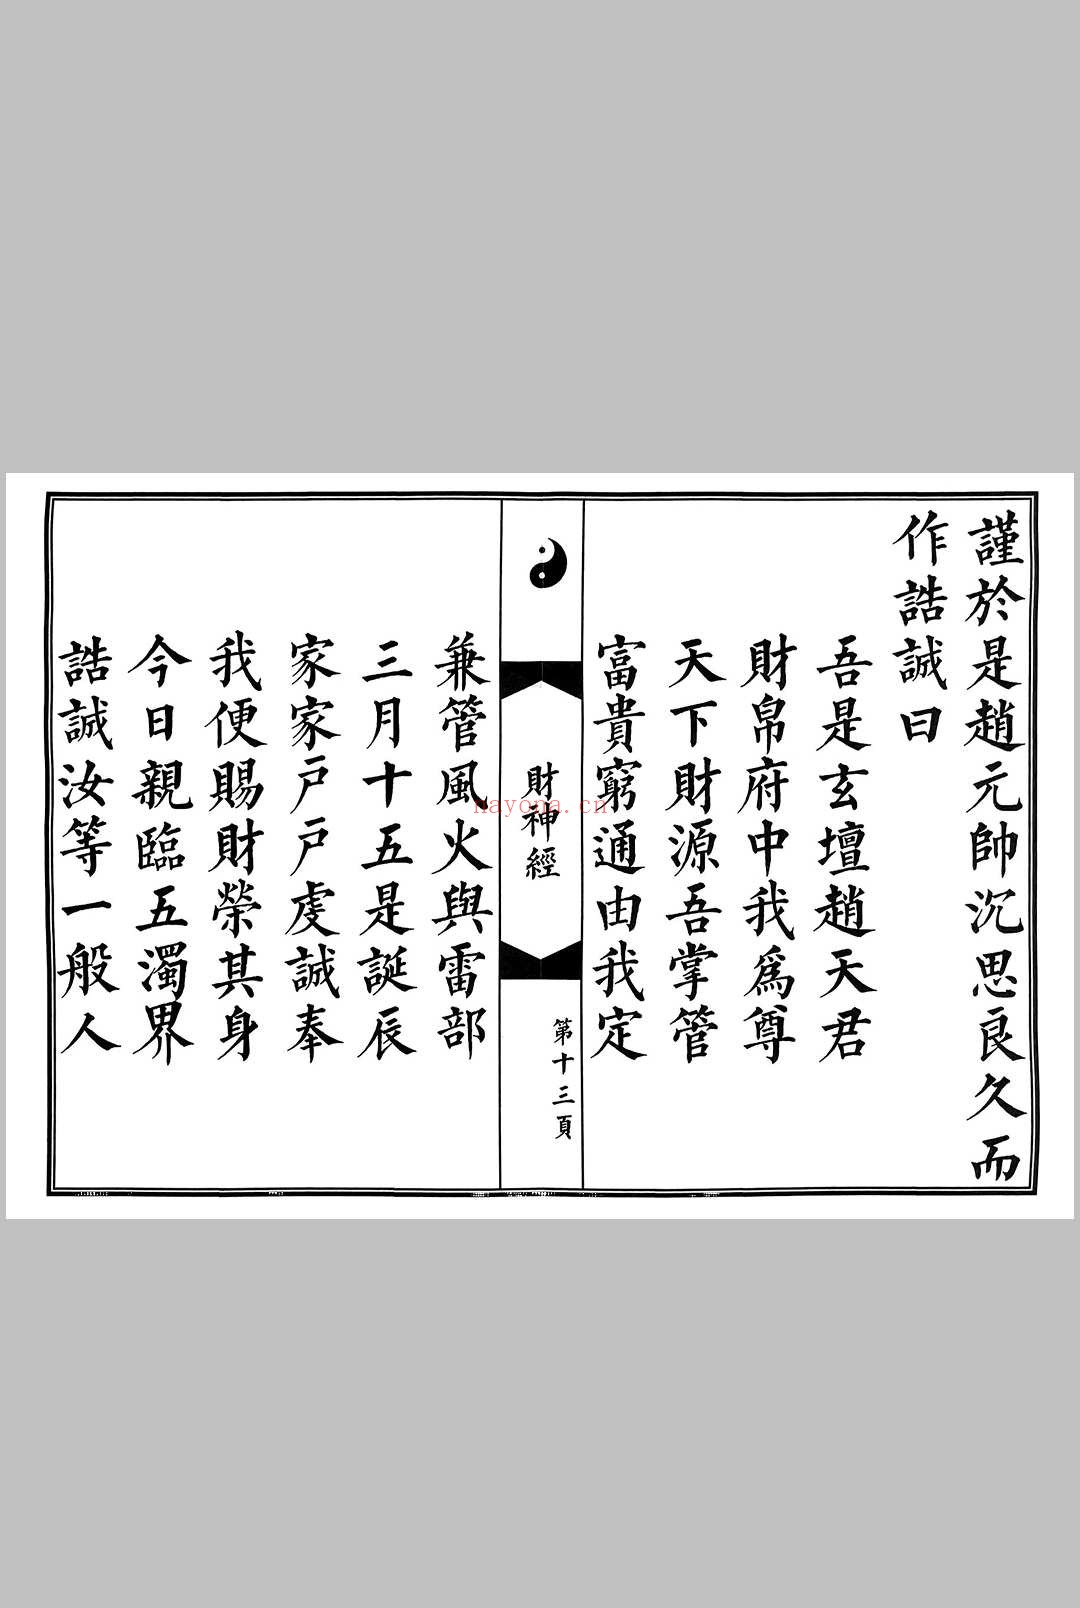 謹於是趙元帥沉思良久而
作誥誠曰
吾是玄壇趙天君
財帛府中我為尊
天下財源吾掌管
富貴窮通由我定
財神經
第十三頁
兼管風火與雷部
三月十五是誕辰
家家戶戶虔誠奉
我便賜財榮其身
今日親臨五濁界
誥誠汝等一般人
nayona.cn